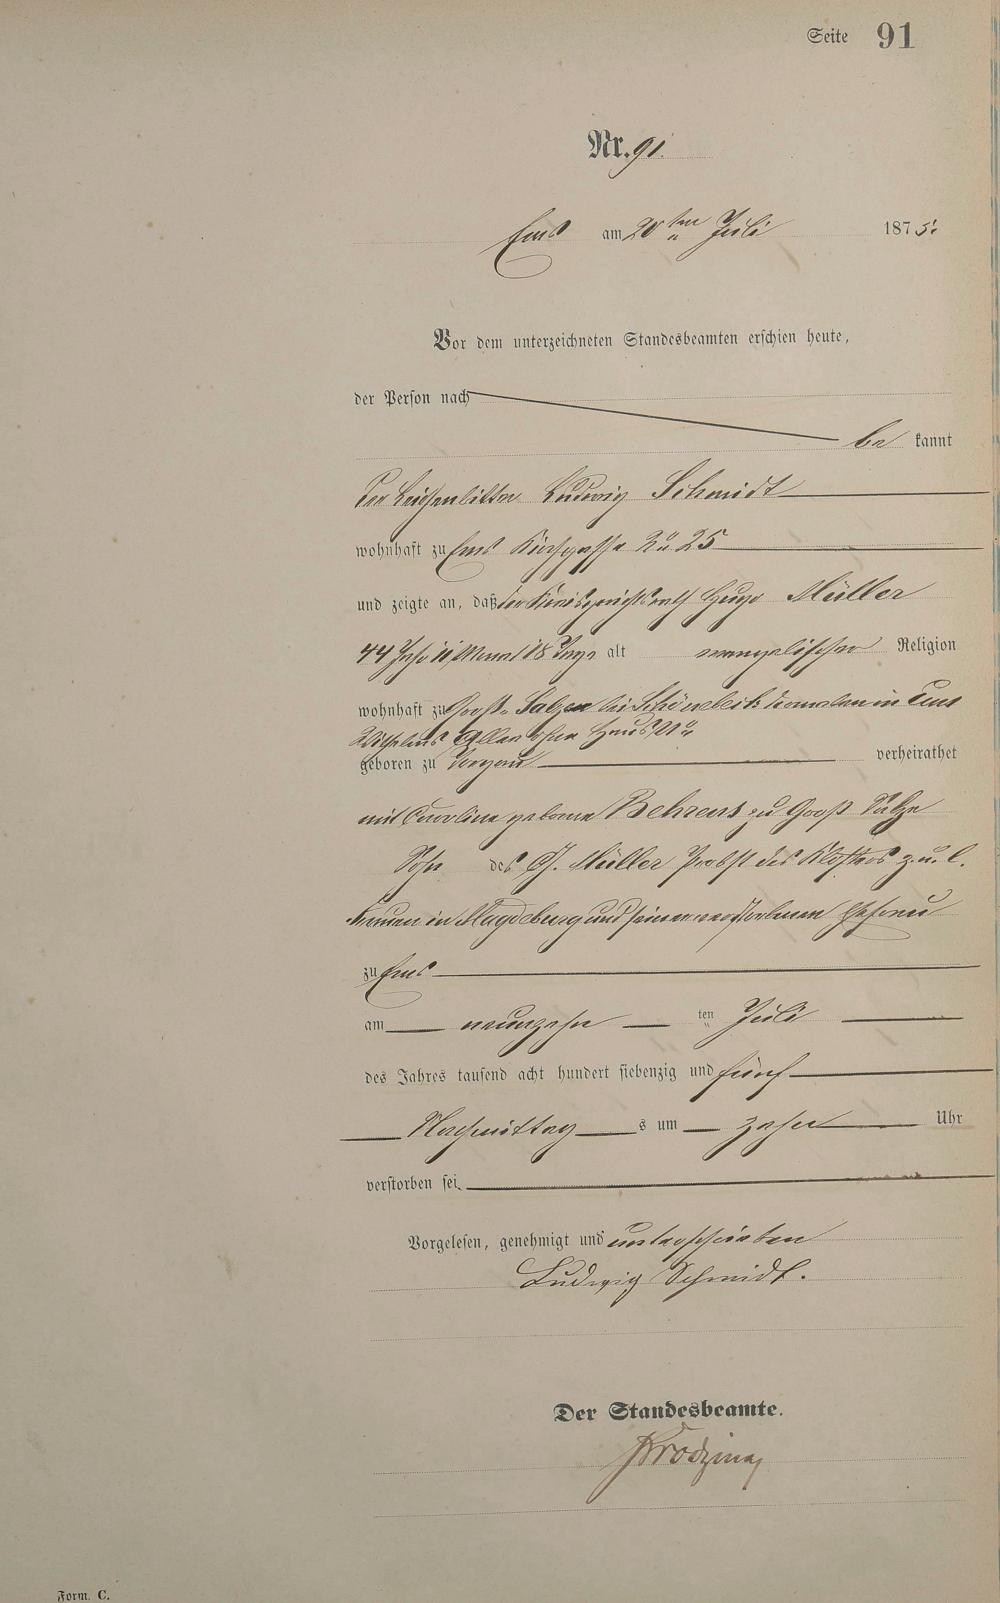 Seite 91
Nr. 91.
Ems am 20ten Juli 1875.
Vor dem unterzeichneten Standesbeamten erschien heute,
der Person nach
be kannt
der Leichenbitter Ludwig Schmidt
wohnhaft zu Ems Kirchgasse No 25
und zeigte an, daß der Kreisgerichtsrath Hugo Müller
44 Jahr 11 Monat 18 Tage alt evangelischer Religion
wohnhaft zu Groß-Salzen bei Schönebeck daneben in Ems
Wilhelms Allee ohne Haus No
geboren zu Torgau verheirathet
mit Caroline geborne Behrens zu Groß Salze
Sohn des Müller Probst des Klosters z. u. l.
Frauen in Magdeburg und seiner verstorbenen Ehefrau
zu Ems
am neunzehn ten Juli
des Jahres tausend acht hundert siebenzig und fünf
Nachmittag s um zehn Uhr
verstorben sei.
Vorgelesen, genehmigt und unterschrieben
Ludwig Schmidt.
Der Standesbeamte.
Form. C.